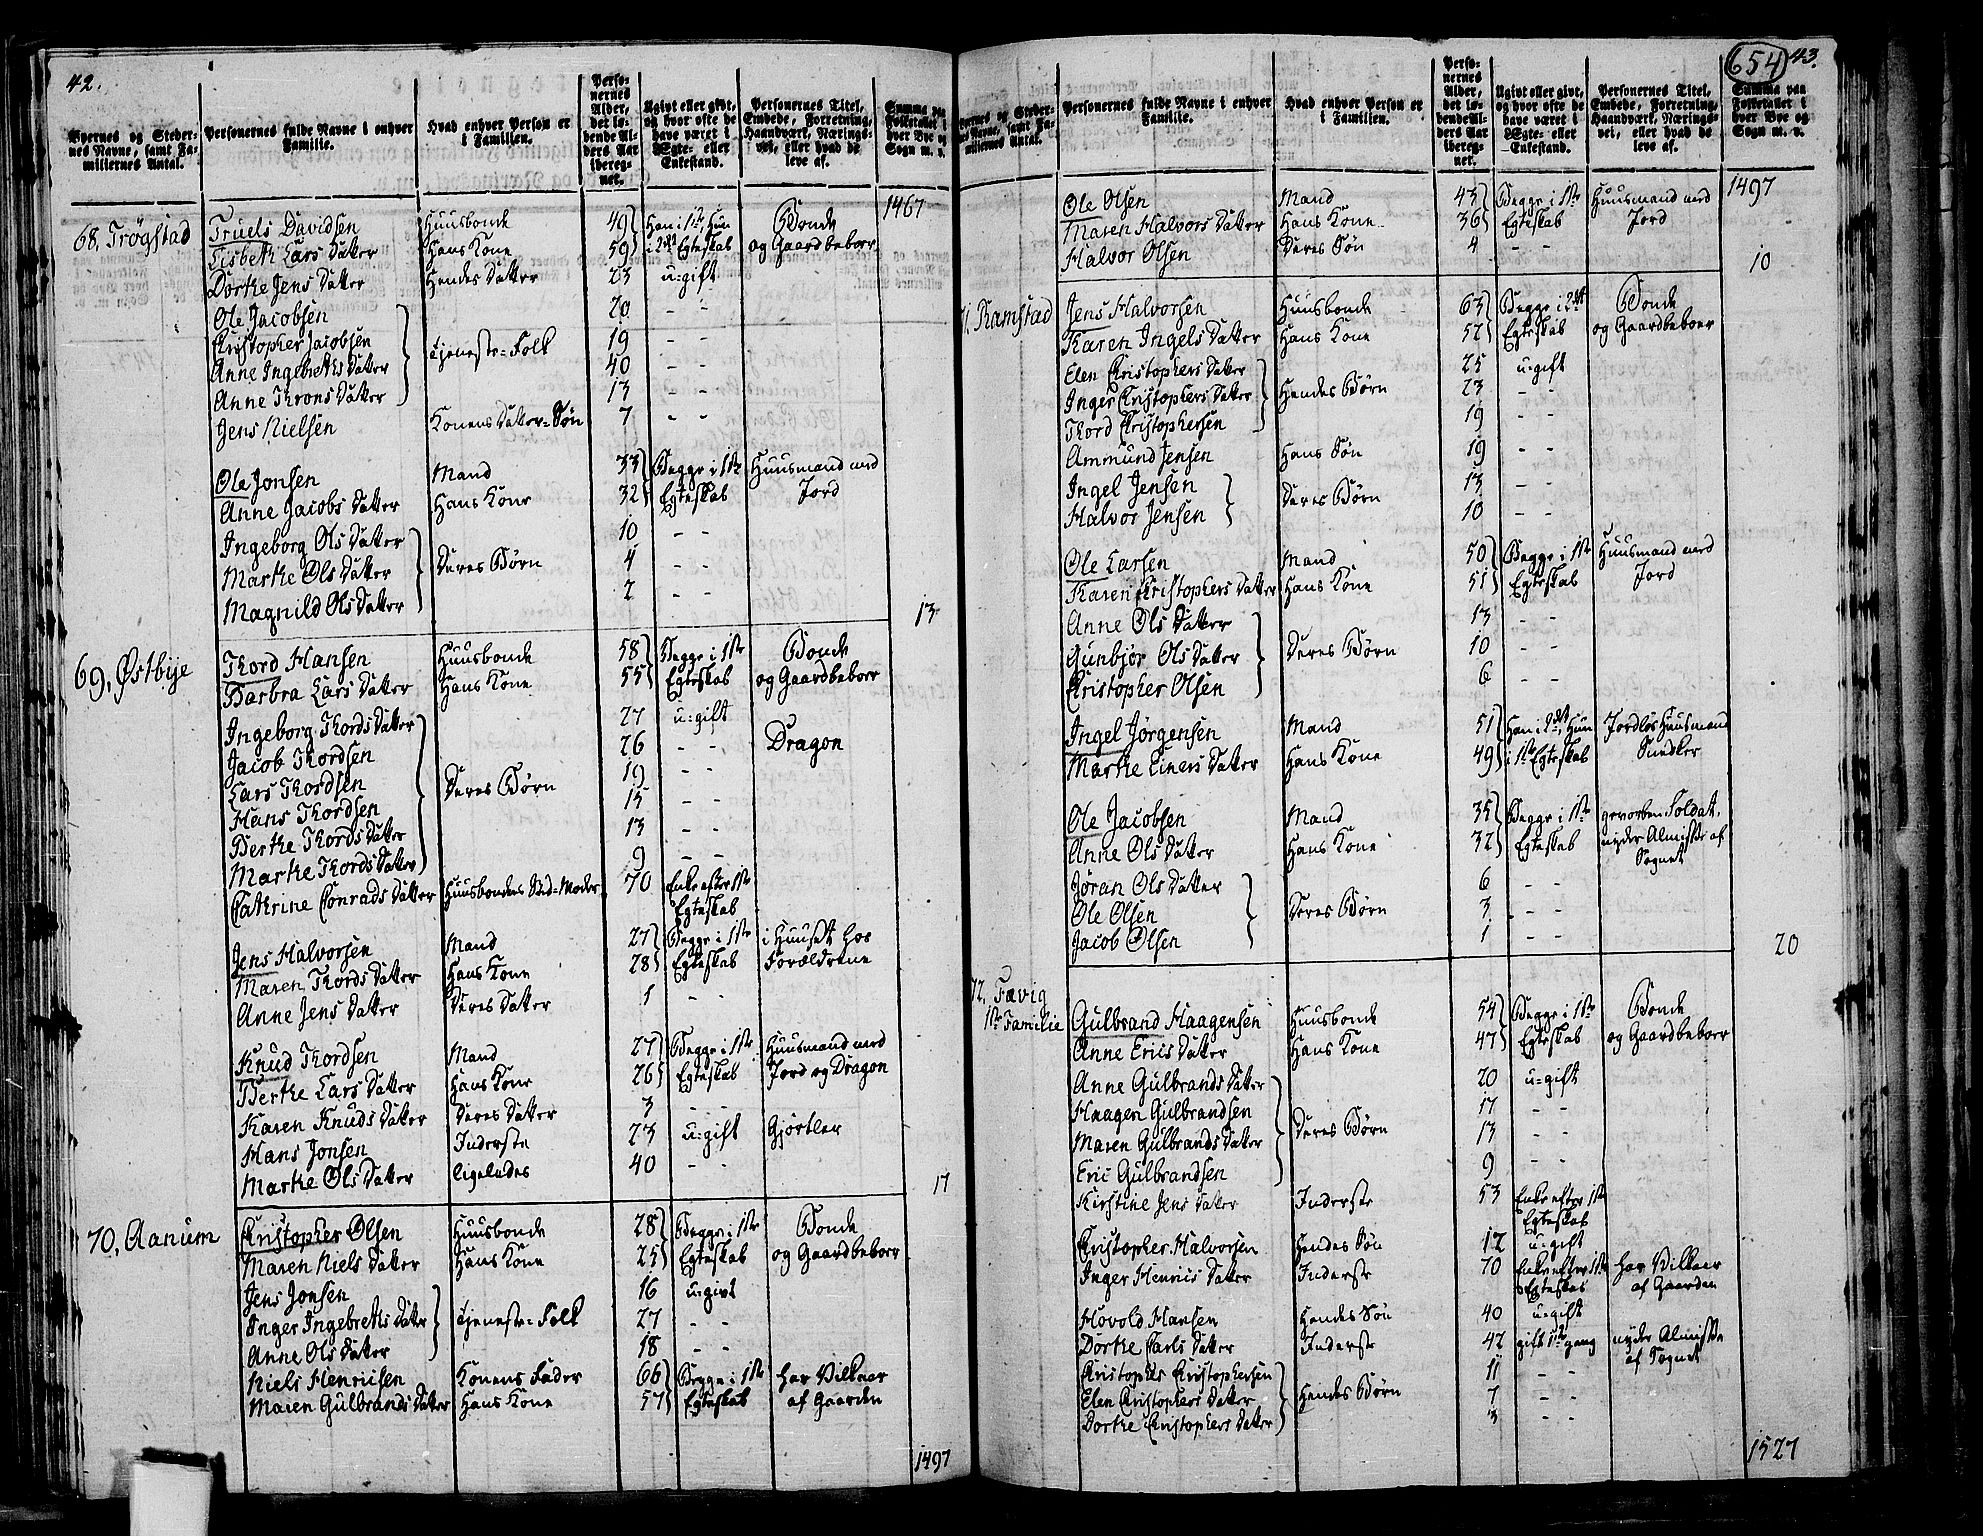 42.
Byernes og Steder-
nes Navne, samt Fa-
miliernes Antal.
Personernes fulde Navne i enhver
Familie.
Hvad enhver Person er
i Familien.
Perso-
nernes
Alder,
det lø-
bende Al-
ders Aar
ibereg-
net.
Ugivt eller givt,
og hvor ofte de
have været i
Ægte- eller
Enkestand.
Personernes Titel,
Embede, Forretning,
Haandværk, Nærings-
vei, eller hvad de
leve af.
Summa paa
Folketallet i
hver Bye og
Sogn m. v.
1467
68, Trøgstad Truels Davidsen Huusbonde 49 Han i 1ste, Hun Bonde
Lisbeth Lars Datter Hans Kone 59 i 2det Egteskab og Gaardbeboer
Dorthe Jens Datter Hendes Datter 23 u=gift
Ole Jacobsen 20 - -
Christopher Jacobsen 19 - -
Anne Ingebreths Datter Tjeneste=Folk 40 - -
Anne Throns Datter 13 - -
Jens Nielsen Konens Datter=Søn 7 - -
Ole Jonsen Mand 33 Begge i 1ste Huusmand med
Anne Jacobs Datter Hans Kone 32 Egteskab Jord
Ingeborg Ols Datter 10 - -
Marthe Ols Datter Deres Børn 4 - -
Magnild Ols Datter 2 - -
13
69, Østbye Thord Hansen Huusbonde 58 Begge i 1ste Bonde
Barbra Lars Datter Hans Kone 55 Egteskab og Gaardbeboer
Ingeborg Thords Datter 27 u=gift
Jacob Thordsen 26 - - Dragon
Lars Thordsen Deres Børn 19 - -
Hans Thordsen 15 - -
Berthe Thords Datter 13 - -
Marthe Thords Datter 9 - -
Cathrine Conrads Datter Huusbondes Sted=Moder 70 Enke efter 1ste
Egteskab
Jens Halvorsen Mand 27 Begge i 1ste i Huuset hos
Maren Thords Datter Hans Kone 28 Egteskab Forældrene
Anne Jens Datter Deres Datter 1 - -
Knud Thordsen Mand 27 Begge i 1ste Huusmand med
Berthe Lars Datter Hans Kone 26 Egteskab Jord og Dragon
Karen Knuds Datter Deres Datter 3 - -
Hans Jonsen Inderste 23 u=gift Gjørtler
Marthe Ols Datter ligeledes 40 - -
17
70, Aanum Christopher Olsen Huusbonde 28 Begge i 1ste Bonde
Maren Niels Datter Hans Kone 25 Egteskab og Gaardbeboer
Jens Jonsen 16 u=givt
Inger Ingebreths Datter Tjeneste=Folk 27 - -
Anne Ols Datter 18 - -
Niels Henricsen Konens Fader 66 Begge i 1ste har Vilkaar
Maren Gulbrands Datter Hans Kone 57 Egteskab af Gaarden
1497
654 43.
Byernes og Steder-
nes Navne, samt Fa-
miliernes Antal.
Personernes fulde Navne i enhver
Familie.
Hvad enhver Person er
i Familien.
Perso-
nernes
Alder,
det lø-
bende Al-
ders Aar
ibereg-
net.
Ugivt eller givt,
og hvor ofte de
have været i
Ægte- eller
Enkestand.
Personernes Titel,
Embede, Forretning,
Haandværk, Nærings-
vei, eller hvad de
leve af.
Summa paa
Folketallet i
hver Bye og
Sogn m. v.
1497
Ole Olsen Mand 43 Begge i 1ste Huusmand med
Maren Halvors Datter Hans Kone 36 Egteskab Jord
Halvor Olsen Deres Søn 4 - -
10
71, Ramstad Jens Halvorsen Huusbonde 63 Begge i 2det Bonde
Karen Ingels Datter Hans Kone 52 Egteskab og Gaardbeboer
Elen Christophers Datter 25 u=gift
Inger Christophers Datter Hendes Børn 23 - -
Thord Christophersen 19 - -
Ammund Jensen Hans Søn 19 - -
Ingel Jensen Deres Børn 13 - -
Halvor Jensen 10 - -
Ole Larsen Mand 50 Begge i 1ste Huusmand med
Karen Christophers Datter Hans Kone 51 Egteskab Jord
Anne Ols Datter 13 - -
Gunbjør Ols Datter Deres Børn 10 - -
Christopher Olsen 6 - -
Ingel Jørgensen Mand 51 Han i 2det, Hun Jordløs Huusmand
Marthe Einers Datter Hans Kone 49 i 1ste Egteskab Snedker
Ole Jacobsen Mand 35 Begge i 1ste gevorben Soldat,
Anne Ols Datter Hans Kone 32 Egteskab nyder Almisse af
Sognet
Jøran Ols Datter 6 - -
Ole Olsen Deres Børn 3 - -
Jacob Olsen 1 - -
20
72, Favig
1ste Familie Gulbrand Haagensen Huusbonde 54 Begge i 1ste Bonde
Anne Erics Datter Hans Kone 47 Egteskab og Gaardbeboer
Anne Gulbrands Datter 20 u=gift
Haagen Gulbrandsen 17 - -
Maren Gulbrands Datter Deres Børn 13 - -
Eric Gulbrandsen 9 - -
Kirstine Jens Datter Inderste 53 Enke efter 1ste
Egteskab
Christopher Halvorsen Hendes Søn 12 u=gift
Inger Henrics Datter Inderste 70 Enke efter 1ste har Vilkaar
Egteskab af Gaarden
Hovold Hansen Hendes Søn 40 u=gift
Dorthe Carls Datter Inderste 42 gift 1ste gang nyder Almisse
af Sognet
Christopher Christophersen 11 - -
Elen Christophers Datter Hendes Børn 7 - -
Dorthe Christophers Datter 3 - -
1527